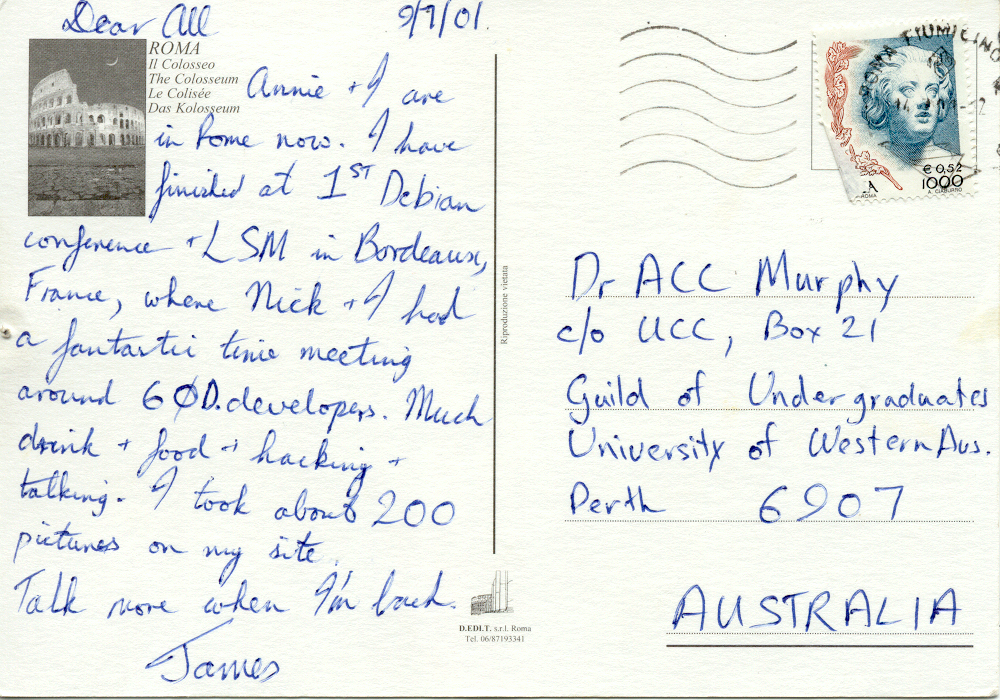 Dear All 9/7/01
ROMA
Il Colosseo
The Colosseum
Le Colisée
Das Kolosseum
Annie + I are
in Rome now. I have
finished at 1ST Debian
conference + LSM in Bordeaux,
France, where Nick + I had
a fantastic time meeting
around 60 D.developers. Much
drink + food + hacking +
talking. I took about 200
pictures on my site.
Talk more when I'm back.
James
Riproduzione vietata
D.EDI.T. s.r.l. Roma
Tel. 06/87193341
ROMA FIUMICINO
€ 0,52
1000
ROMA
Dr ACC Murphy
c/o UCC, Box 21
Guild of Undergraduates
University of Western Aus.
Perth 6907
AUSTRALIA